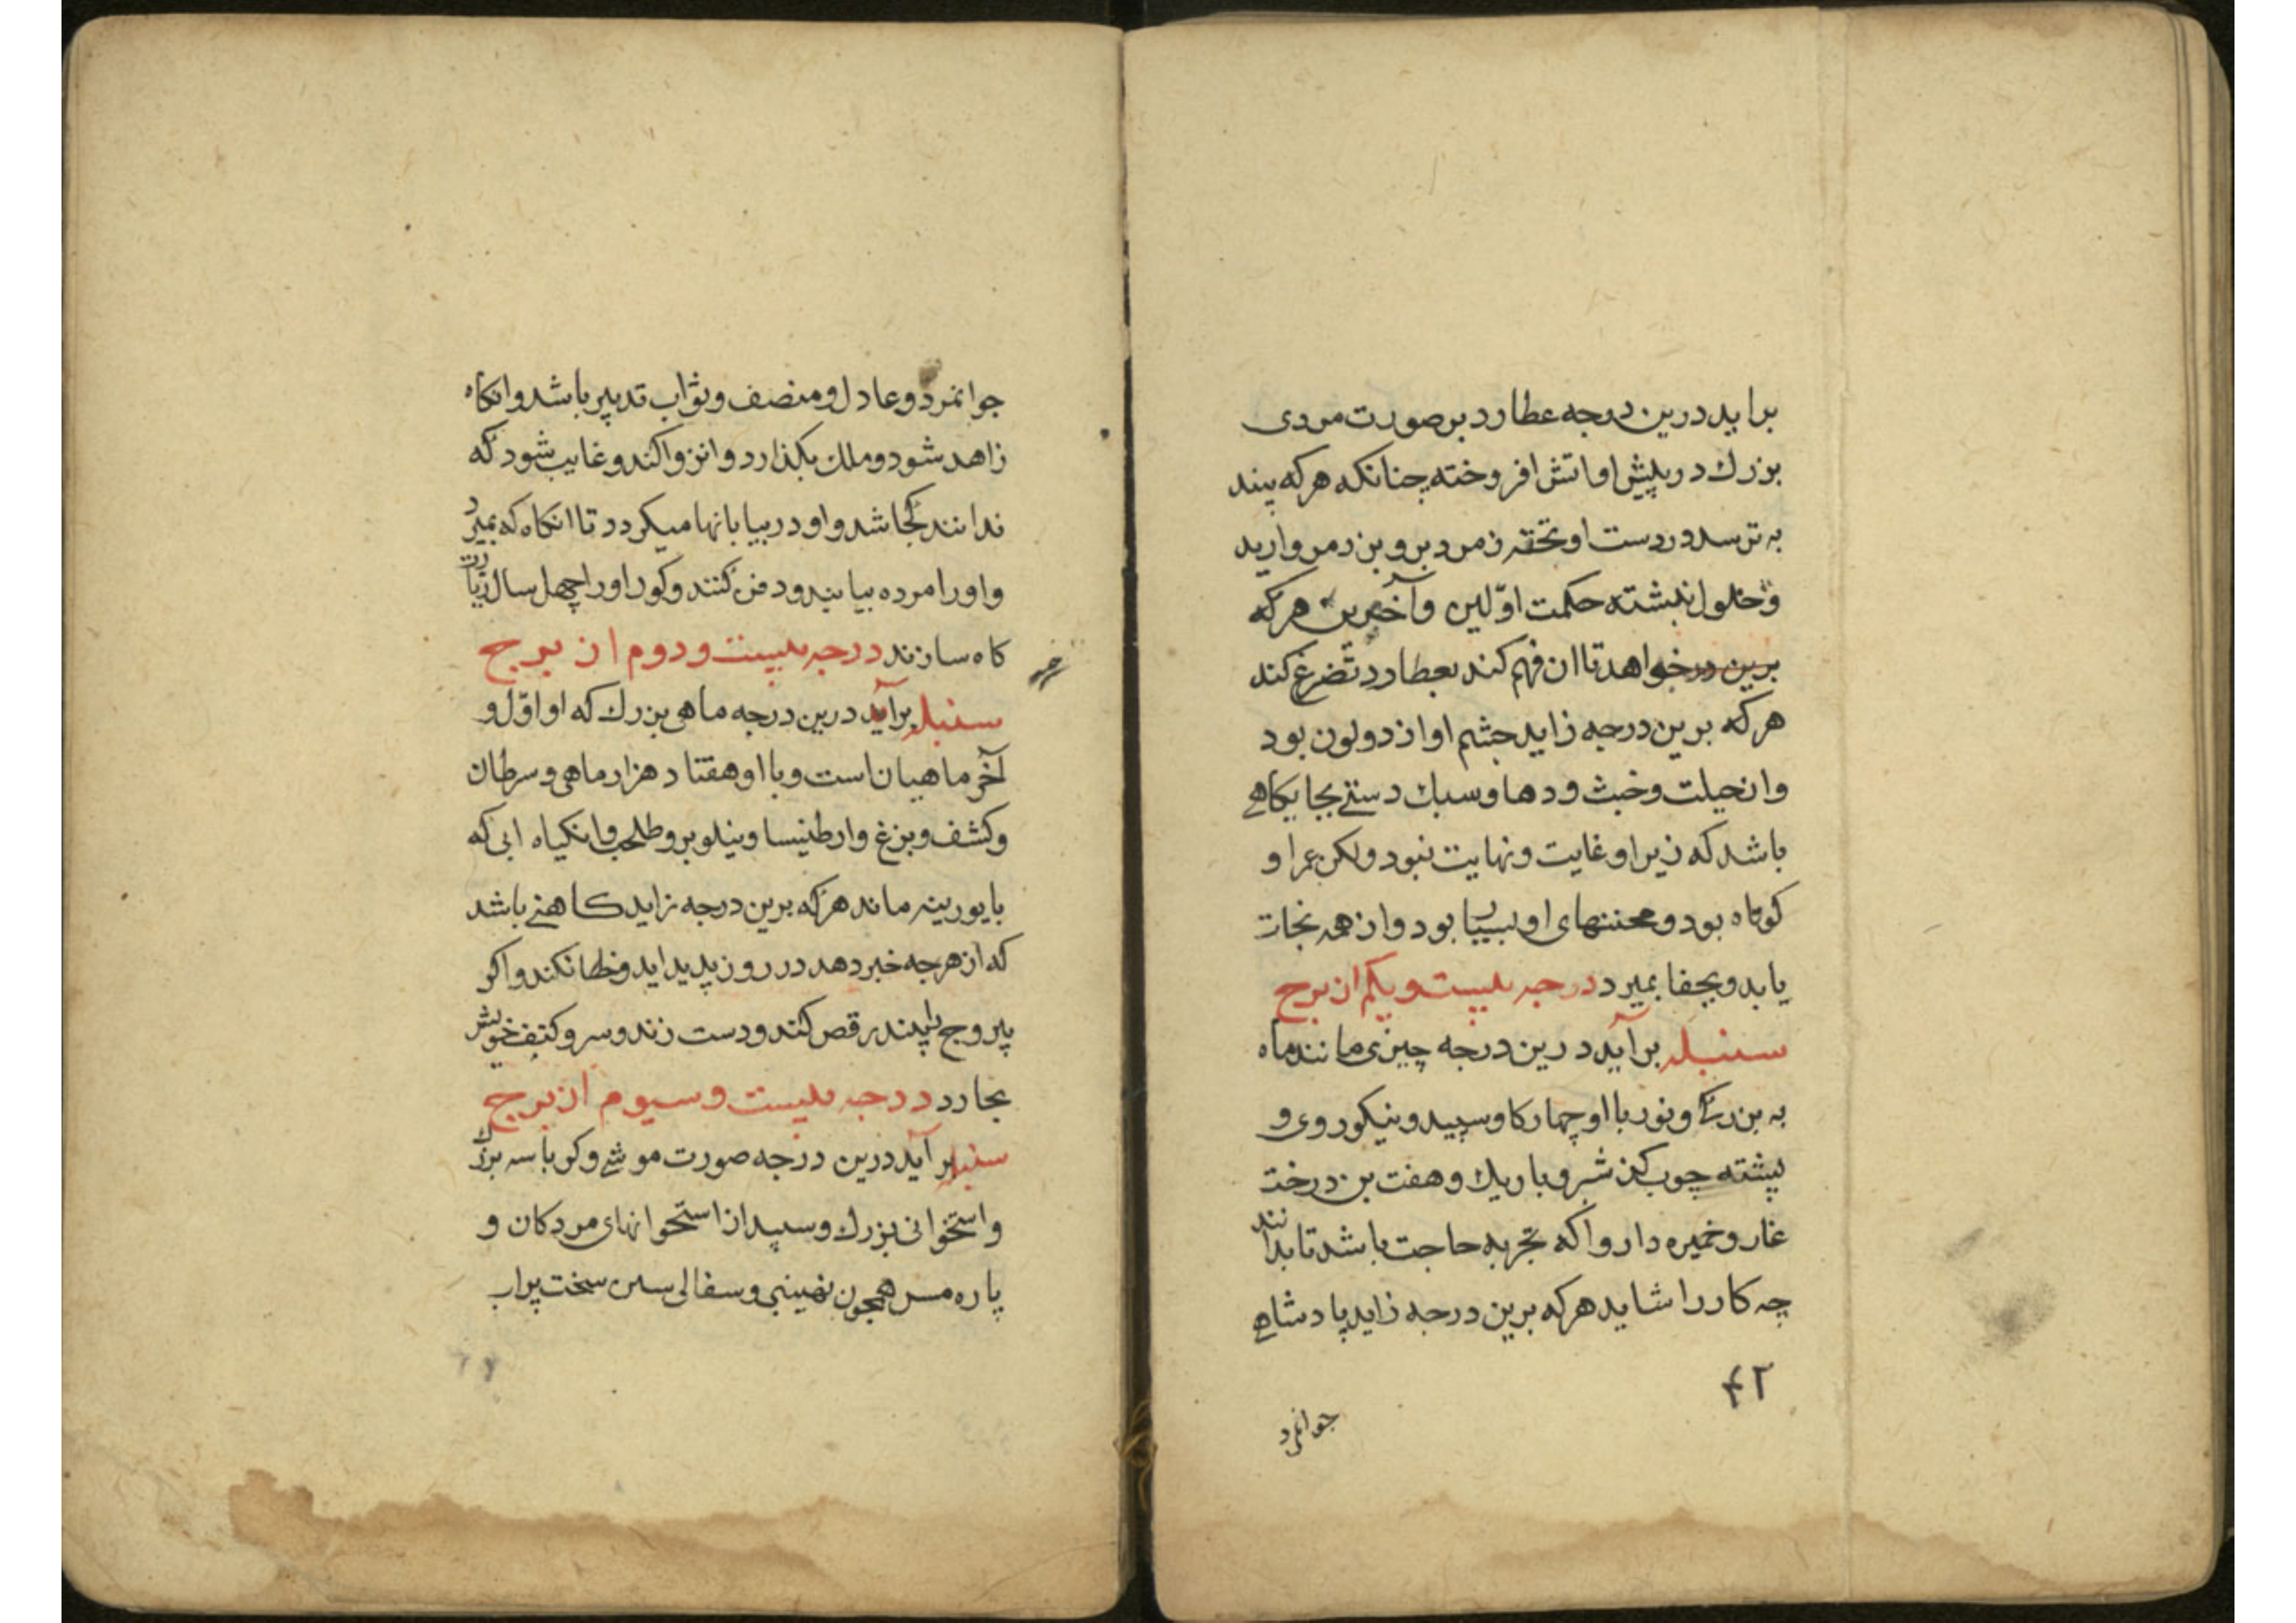 براید درین درجه عطارد بر صورت مردی
بزرك در پیش او اتش افروخته چنانکه هرکه بیند
به ترسد در دست او تخته زمرد بر و بن زمروارید
نبشته حکمت اوّلین و آخرین هرکه
برین در خواهد تا ان فهم کند بعطارد تضرغ کند
هرکه برین درجه زاید جشم او از دو لون بود
وان حیلت و خبث و دها و سبك دستی بجایکاهی
باشد که زیر او غایت و نهایت نبود و لکن عمر او
کوتاه بود و محنتهای او بسیار بود وان همه نجات
یابد و بجفا بمیرد درجه بیست و یکم از برج
سنبله برآید درین درجه چیزی مانند ماه
به بزرگی و نور با او چهار کاو سپید و نیکو روی و
پشته چوب کز شر و باریك و هفت بن درخت
غار و خمیره دارو اکه تجربه حاجت باشد تا بدانند
چه کار را شاید هرکه برین درجه زاید پادشاهی
۴۲
جوانمرد
جوانمرد و عادل و منصف و ثواب تدبیر باشد وانکاه
زاهد شود و ملك بکذارد و انزوا کند و غایب شود که
ندانند کجا شد و او در بیابانها میکردد تا انکاه که بمیرد
و اورا مرده بیابند و دفن کنند و کور اورا چهل سال زیارت
کاه سازند درجه بیست و دوم از برج
سنبله برآید درین درجه ماهی بزرك که او اوّل و
آخر ماهیان است و با او هفتاد هزار ماهی و سرطان
و کشف و بزغ و ارطنیسا و نیلوبر و طحلب وانکیاه ابی که
بایورینه ماند هرکه برین درجه زاید کاهنی باشد
که از هرجه خبر دهد در روز پدید اید و خطا نکند و اکر
پیروج بیند رقص کند و دست زند و سر و کتف خویش
بخارد درجه بیست و سیوم از برج
سنبله برآید درین درجه صورت موشی و کو با سه بزرك
و استخوانی بزرك و سپید از استخوانهای مردکان و
پاره مس همچون نهنبنی و سفالی سخت پراب